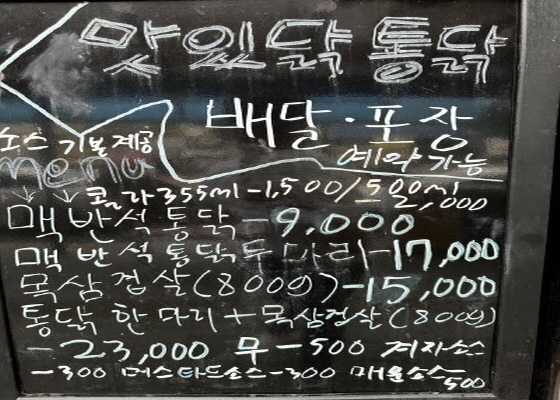 맛있닭 통닭
배달·포장
예약 가능
소스 기본제공
menu
콜라 355ml -1,500/500ml 2,000
맥반석 통닭 -9,000
맥반석 통닭 두마리-17,000
목삼겹살(800g)-15,000
통닭 한마리+목삼겹살(800g)
-23,000 무-500 겨자소스
-300 머스타드소스-300 매운소스 500